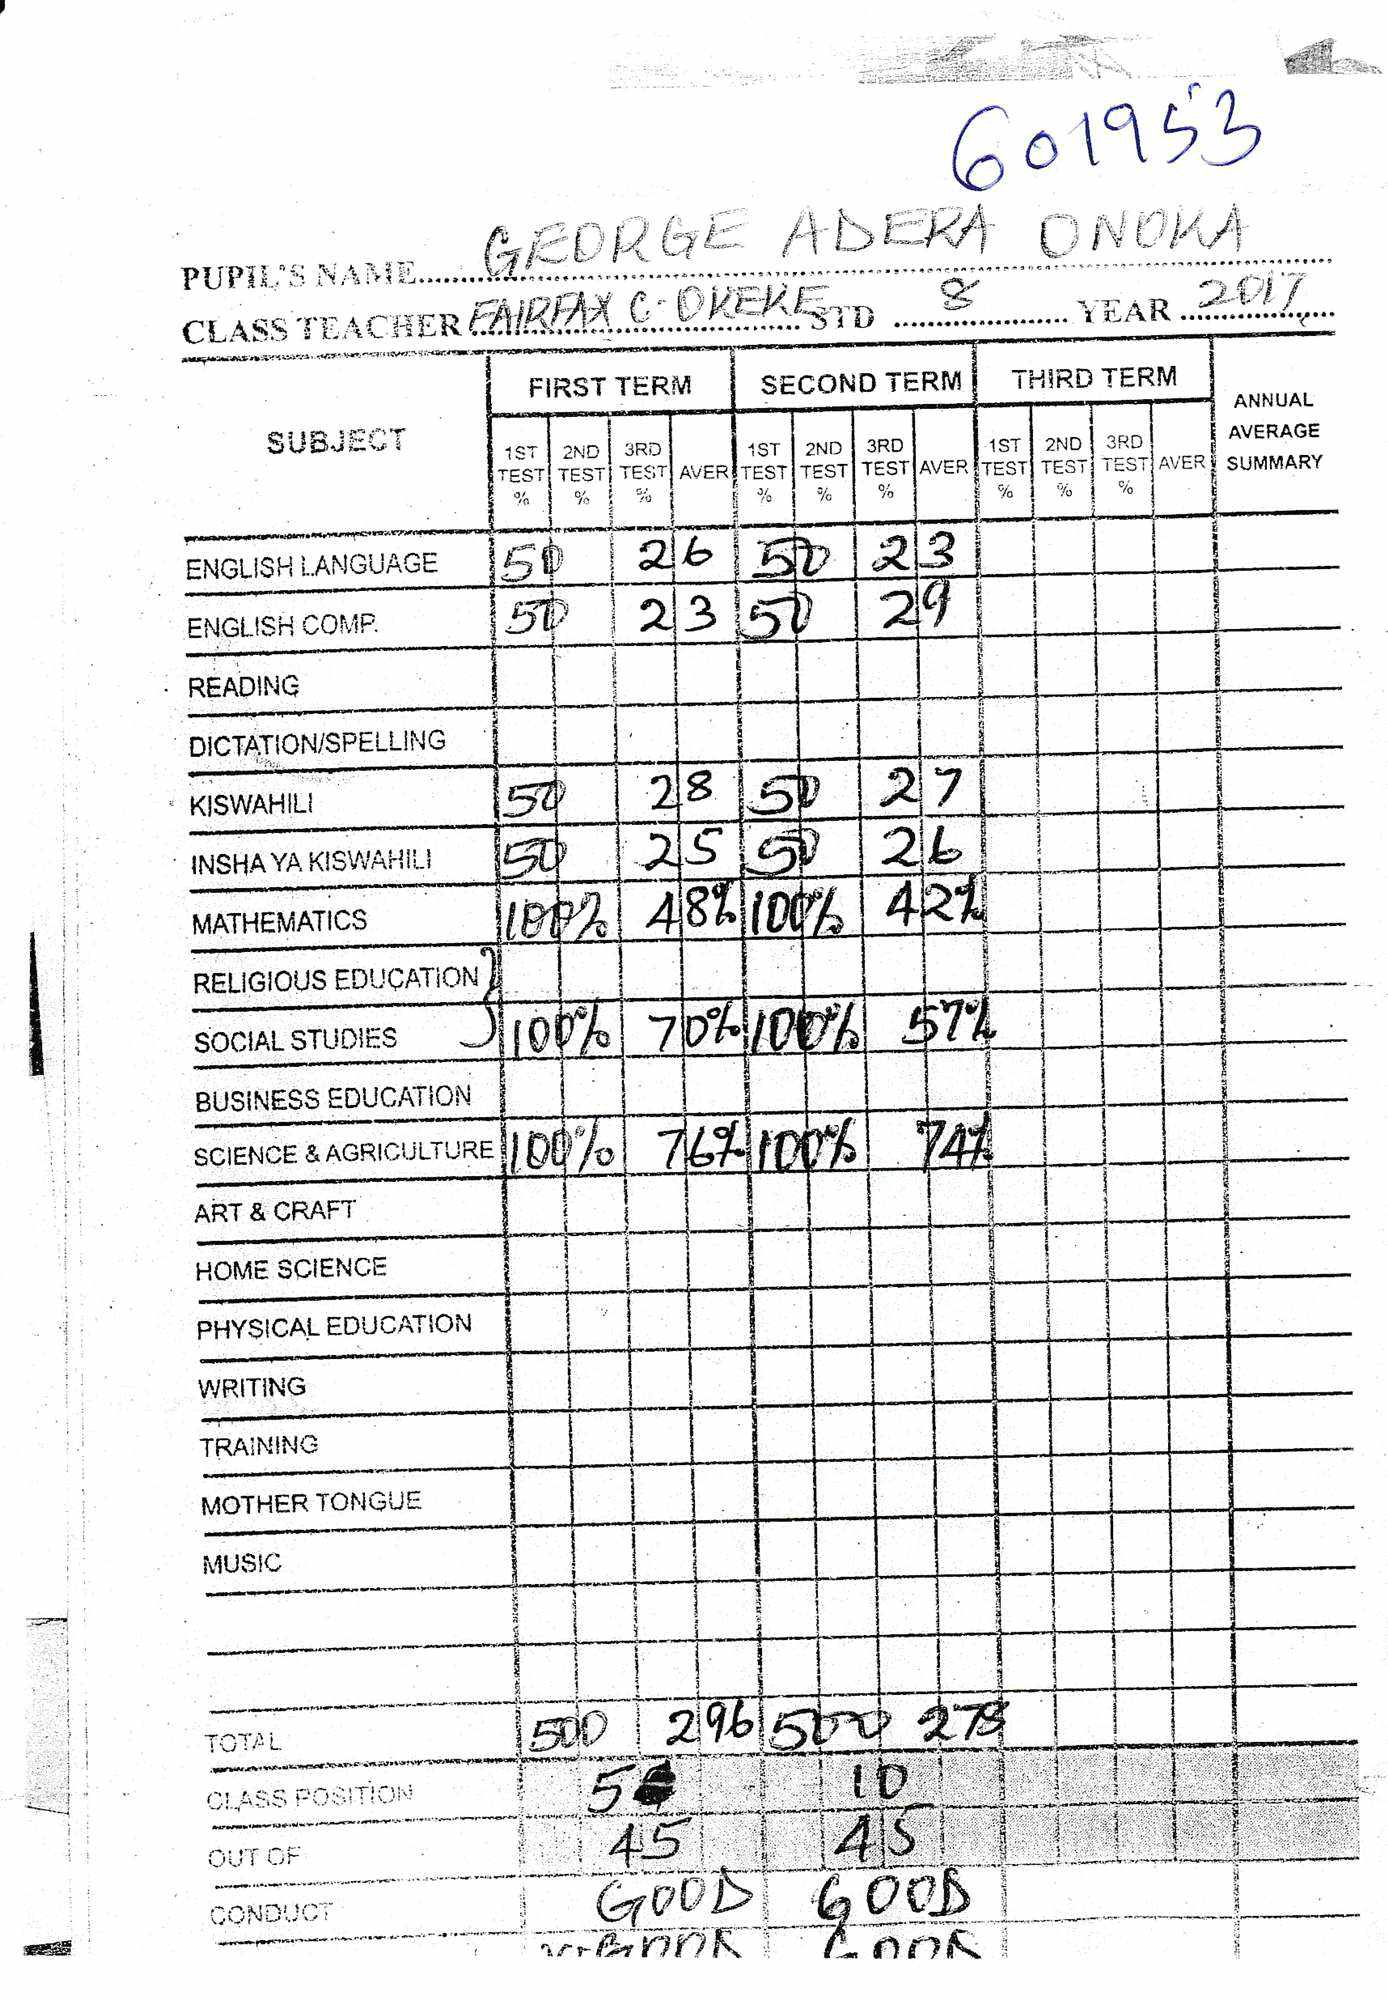 601953
PUPIL'S NAME GEORGE ADERA ONOKA
CLASS TEACHER FAIRFAX C. OKEKE STD 8 YEAR 2017
SUBJECT FIRST TERM SECOND TERM THIRD TERM ANNUAL AVERAGE SUMMARY
1ST TEST % 2ND TEST % 3RD TEST % AVER 1ST TEST % 2ND TEST % 3RD TEST % AVER 1ST TEST % 2ND TEST % 3RD TEST % AVER
ENGLISH LANGUAGE 50 26 50 23
ENGLISH COMP. 50 23 50 29
READING
DICTATION/SPELLING
KISWAHILI 50 28 50 27
INSHA YA KISWAHILI 50 25 50 26
MATHEMATICS 100% 48% 100% 42%
RELIGIOUS EDUCATION
SOCIAL STUDIES 100% 70% 100% 57%
BUSINESS EDUCATION
SCIENCE & AGRICULTURE 100% 76% 100% 74%
ART & CRAFT
HOME SCIENCE
PHYSICAL EDUCATION
WRITING
TRAINING
MOTHER TONGUE
MUSIC
TOTAL 500 296 500 278
CLASS POSITION 5 10
OUT OF 45 45
CONDUCT GOOD GOOD